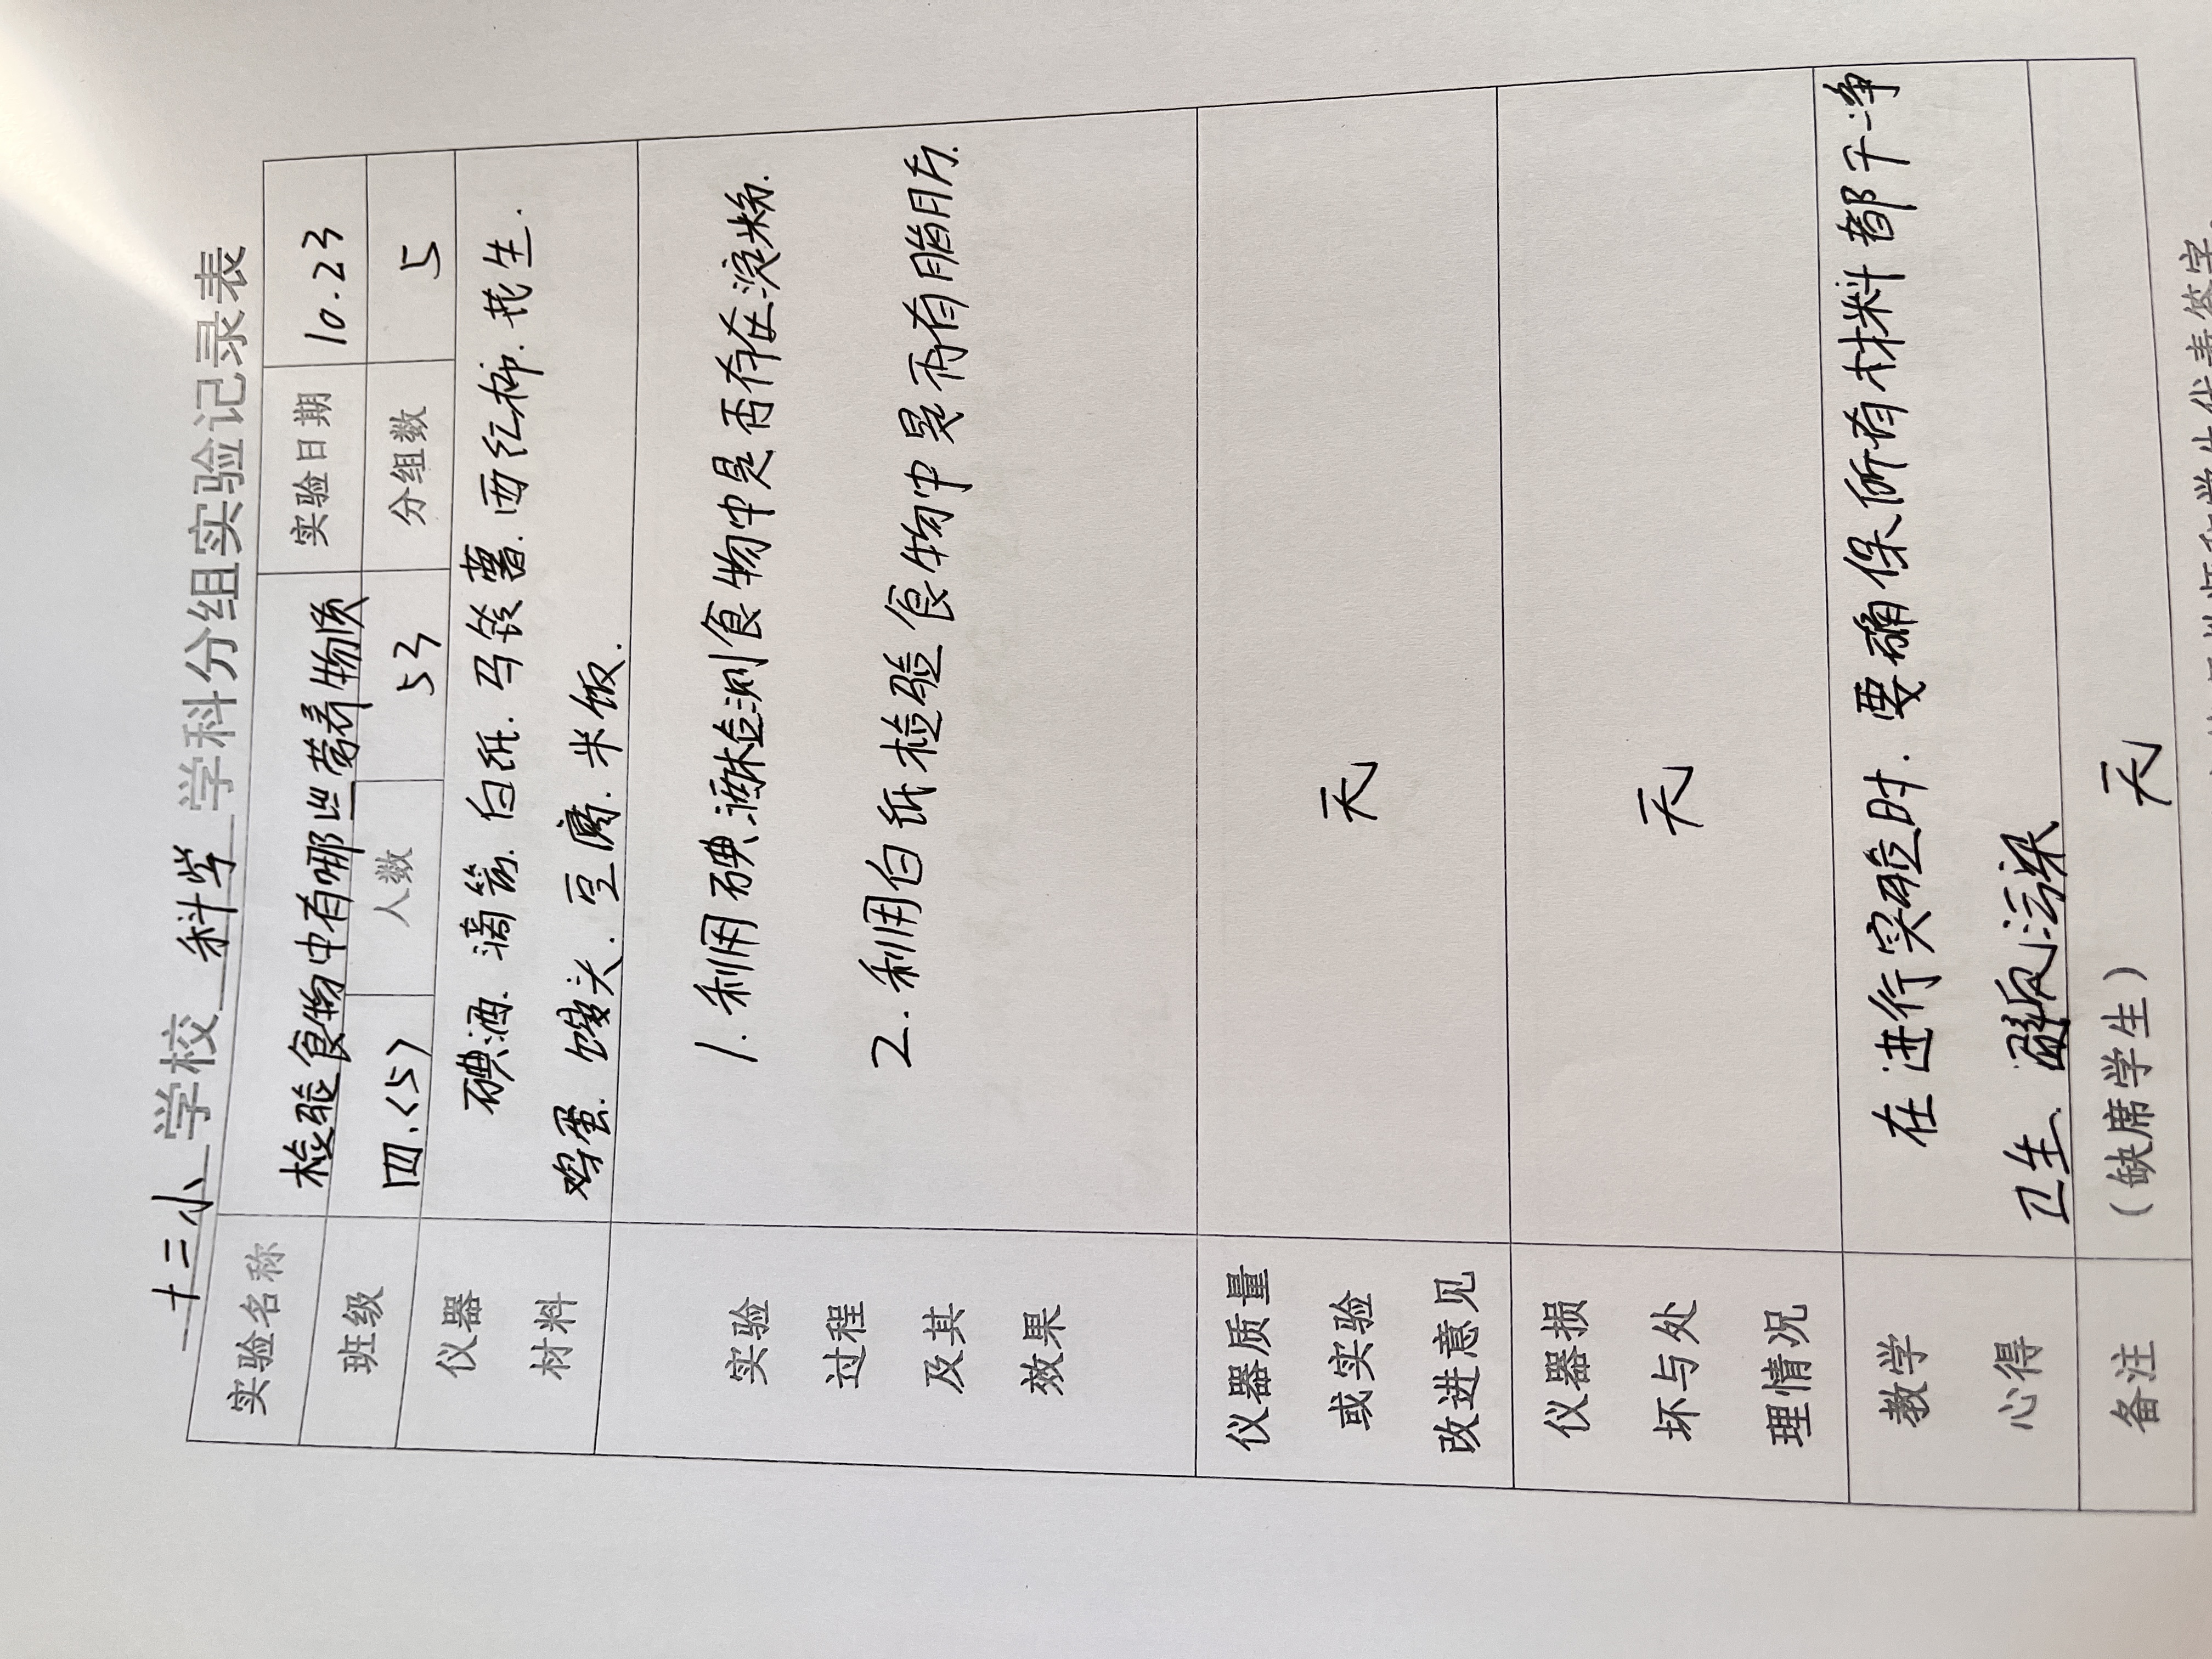 十三小 学校 科学 学科分组实验记录表
实验名称 检验食物中有哪些营养物质 实验日期 10.23
班级 四.<5> 人数 53 分组数 5
仪器 碘酒.滴管.白纸.马铃薯.西红柿.花生.
材料 鸡蛋.馒头.豆腐.米饭.
1.利用碘酒检测食物中是否存在淀粉.
实验
过程
2.利用白纸检验食物中是否有脂肪.
及其
效果
仪器质量
或实验 无
改进意见
仪器损
坏与处 无
理情况
教学 在进行实验时.要确保所有材料都干净
心得 卫生、避免污染
备注 (缺席学生) 无